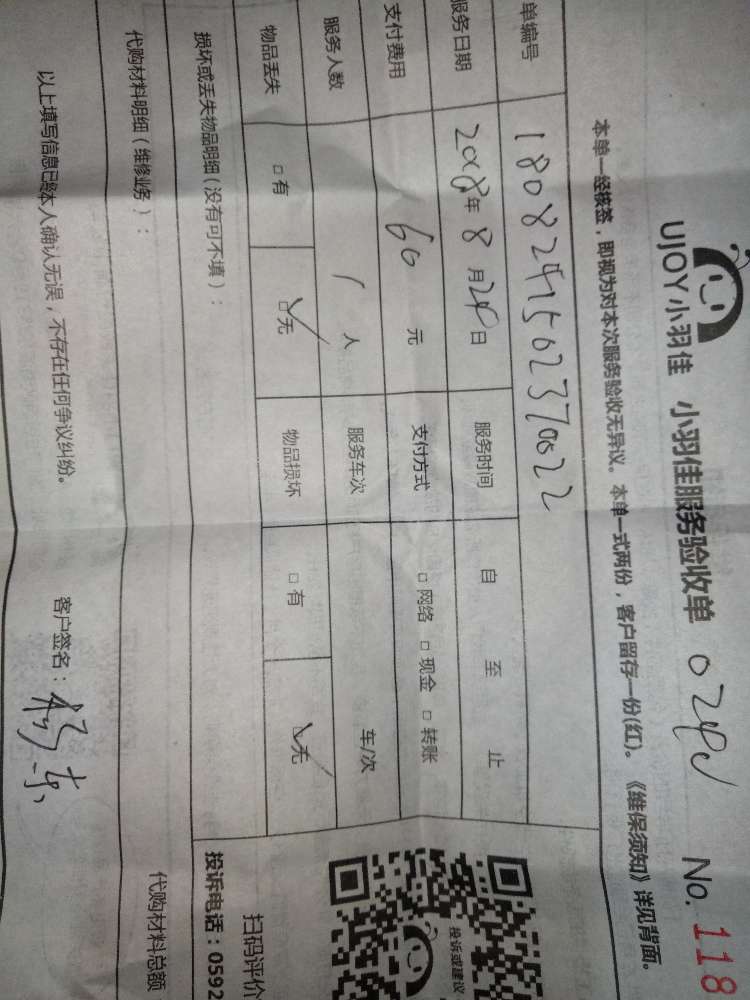 UJOY小羽佳 小羽佳服务验收单 No. 118
本单一经核签，即视为对本次服务验收无异议。本单一式两份，客户留存一份(红)。《维保须知》详见背面。
单编号 1808241502370022
服务日期 2018年 8 月 24 日 服务时间 自 至 止
支付费用 60 元 支付方式 □ 网络 □ 现金 □ 转账
服务人数 1 人 服务车次 车/次
物品丢失 □ 有 □ 无 物品损坏 □ 有 □ 无
损坏或丢失物品明细（没有可不填）：
代购材料明细（维修业务）： 代购材料总额
以上填写信息已经本人确认无误，不存在任何争议纠纷。 客户签名：
投诉或建议
扫码评价
投诉电话：0592